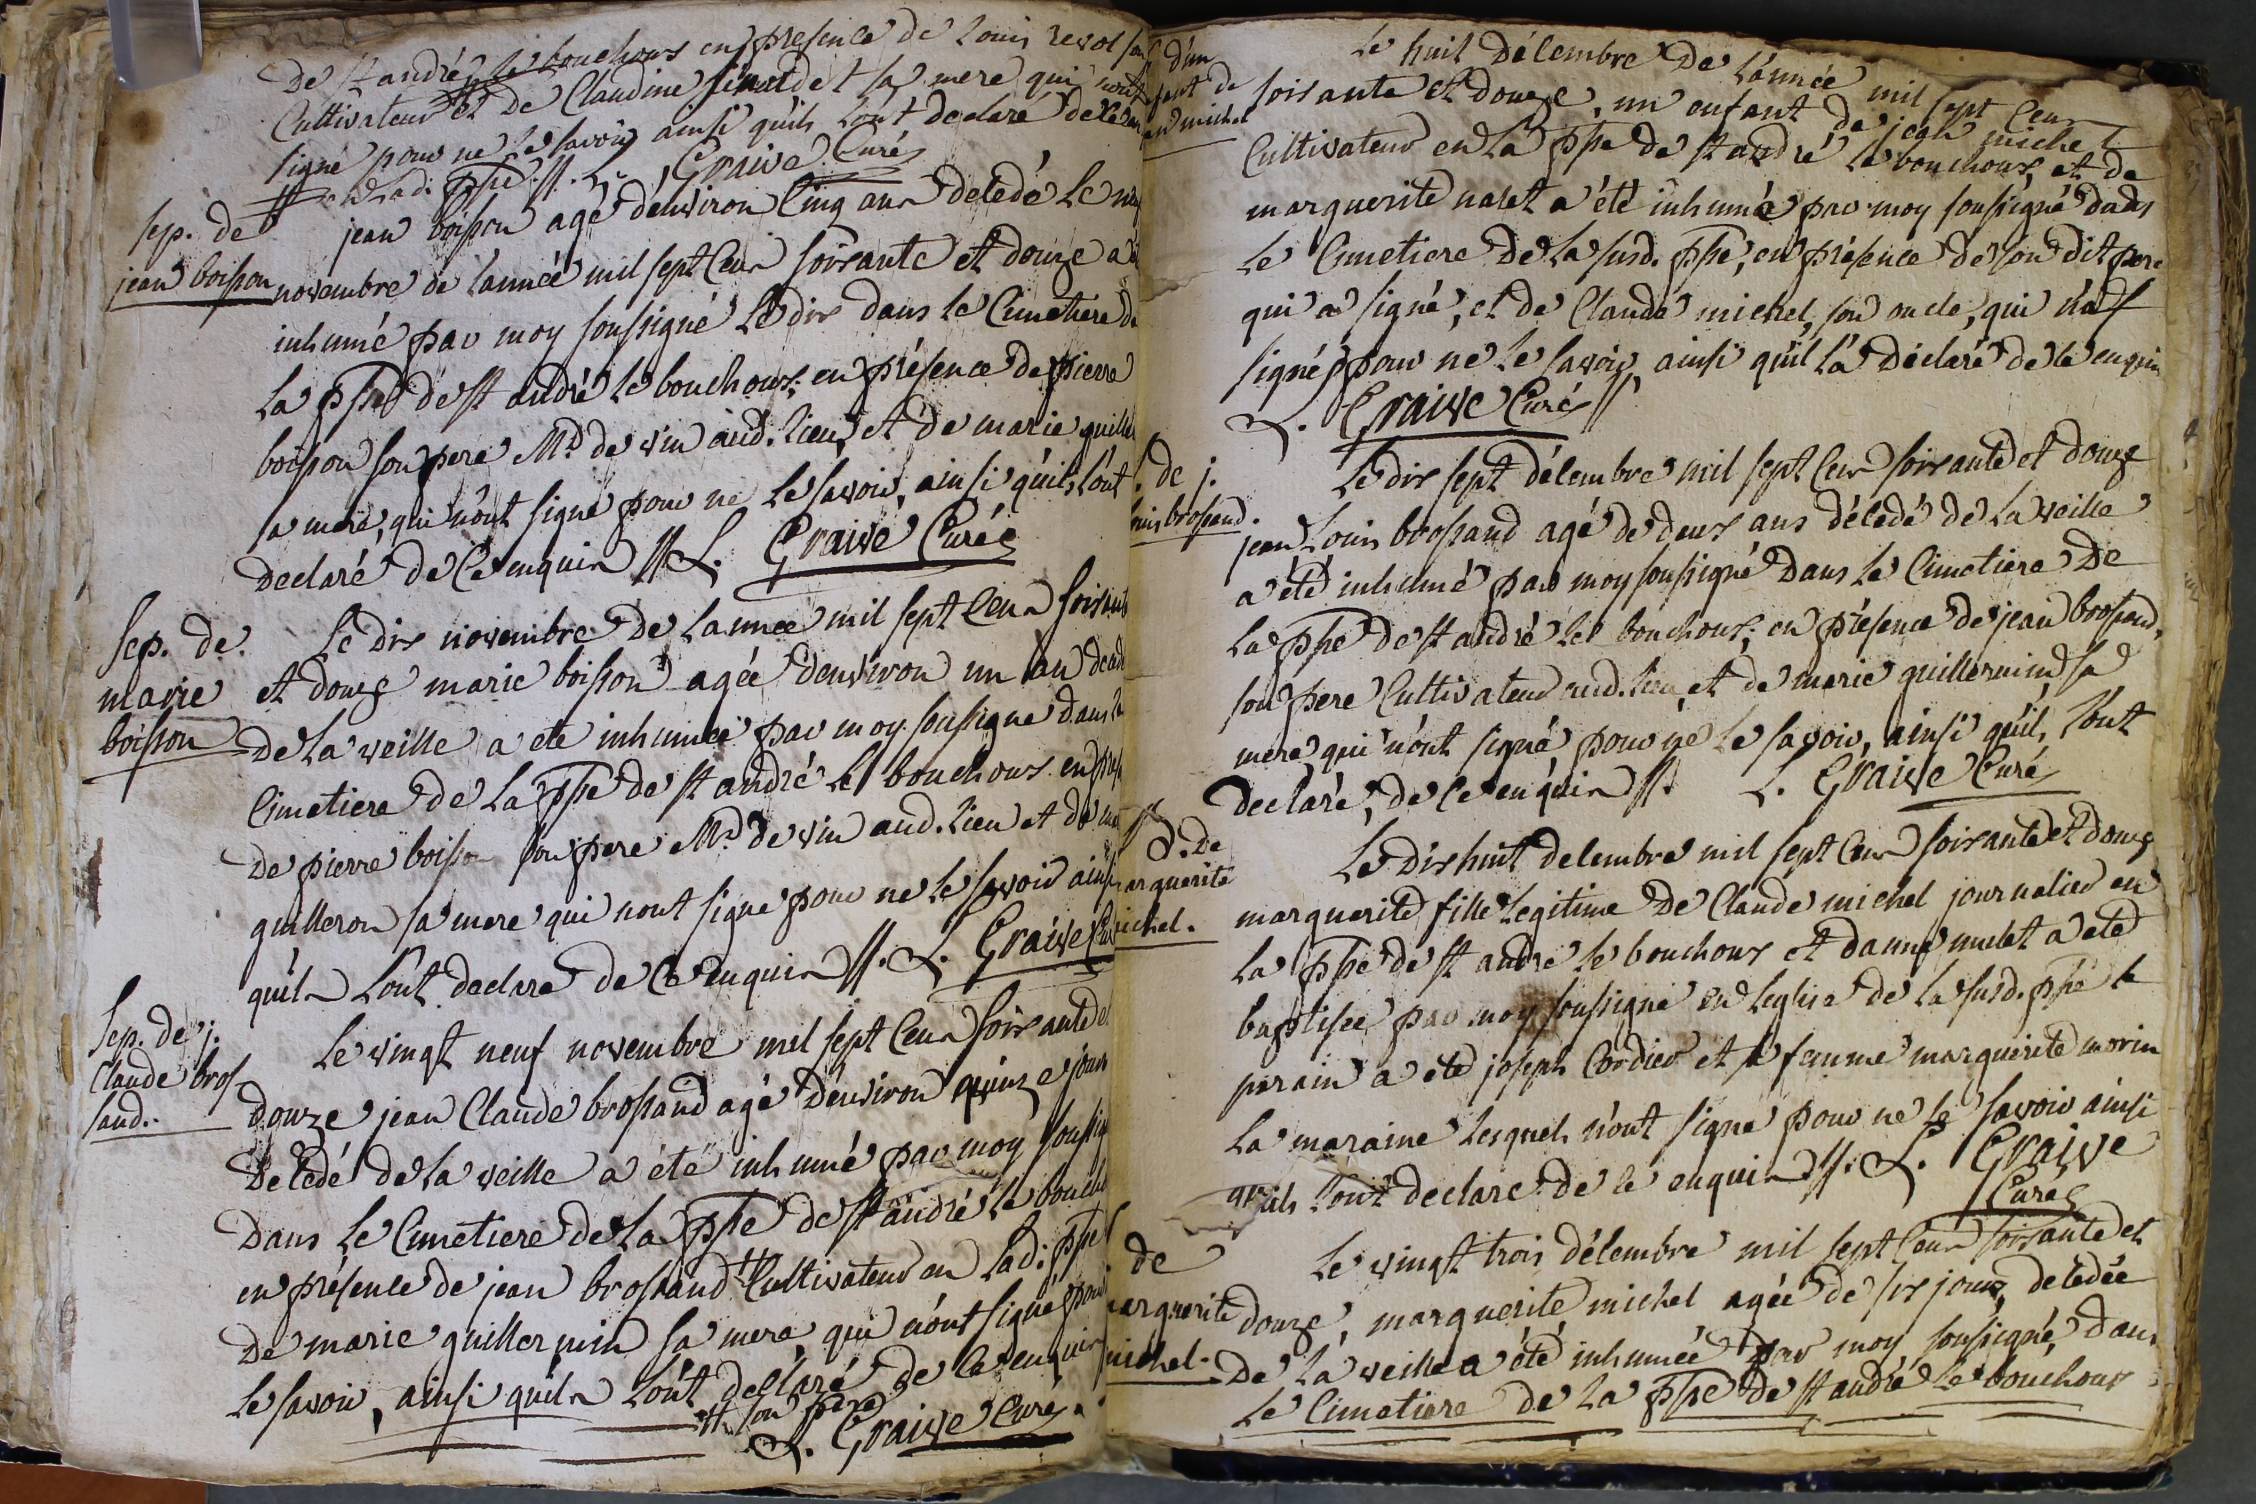 De st andré le bouchoux en presence de Louis revol son
Cultivateur et de Claudine sa mere qui n'ont
signé pour ne le savoir ainsi qu'ils l'ont declaré de ce en
en lad. ppe. //. L. Graive Curé
Sep. de
jean boisson
jean boisson agé d'environ Cinq ans decedé le neuf
novembre de l'année mil sept Cens soixante et douze a été
inhumé par moy soussigné le dix dans le Cimetiere de
la ppe de st andré le bouchoux; en présence de pierre
boisson son pere Md. de vin aud. lieu, et de marie guille
sa mere, qui n'ont signé pour ne le savoir, ainsi qu'ils l'ont
declaré de Ce enquis // L. Graive Curé
Sep. de
marie
boisson
Le dix novembre de l'année mil sept Cens soixante
et douze marie boisson agée d'environ un an decedé
de la veille a été inhumée par moy soussigné dans le
Cimetiere de la ppe de st andré le bouchoux en pres
de pierre boisson son pere Md. de vin aud. lieu et de mar
guilleron sa mere qui n'ont signé pour ne le savoir ainsi
qu'ils l'ont declaré de Ce enquis //. L. Graive Curé
Sep. de j.
Claude bros-
sand.
Le vingt neuf novembre mil sept Cens soixante et
douze jean Claude brossand agé d'environ quinze jours
decedé de la veille a été inhumé par moy soussig
dans le Cimetiere de la ppe de st andré le bouch
en présence de jean brossand # Cultivateur en lad. ppe
de marie guillermin sa mere, qui n'ont signé pour
le savoir, ainsi qu'ils l'ont declaré de Ce enquis
# son pere
L. Graive Curé.
d'un
enfant de
jean michel
Le huit décembre de l'année mil sept Cens
soixante et douze, un enfant de jean michel
Cultivateur en la ppe de st andré le bouchoux, et de
marguerite nalet a été inhumée par moy soussigné dans
le Cimetiere de la susd. ppe, en présence de son dit pere
qui a signé, et de Claude michel, son oncle, qui n'a
signé pour ne le savoir ainsi qu'il l'a déclaré de ce enquis
L. Graive Curé //
. de j.
Louis brossand.
Le dix sept décembre mil sept Cens soixante et douze
jean Louis brossand agé de deux ans décedé de la veille
a été inhumé par moy soussigné dans le Cimetiere de
la ppe de st andré le bouchoux; en présence de jean brossand,
son pere Cultivateur aud. lieu, et de marie guillermin sa
mere, qui n'ont signé pour ne le savoir, ainsi qu'ils l'ont
declaré, de Ce enquis //. L. Graive Curé
. de
marguerite
michel.
Le dixhuit decembre mil sept Cens soixante et douze
marguerite fille legitime de Claude michel journalier en
la ppe de st andre le bouchoux et d'anne mulet a été
baptisée par moy soussigné en leglise de la susd. ppe le
parain a été joseph Cordier et sa femme marguerite morin
la maraine lesquels n'ont signé pour ne le savoir ainsi
qu'ils l'ont declaré de ce enquis //. L. Graive
Curé
de
marguerite
michel.
Le vingt trois décembre mil sept Cens soixante et
douze, marguerite michel agée de six jours, decedée
de la veille a été inhumée par moy soussigné, dans
le Cimetiere de la ppe de st andré le bouchoux